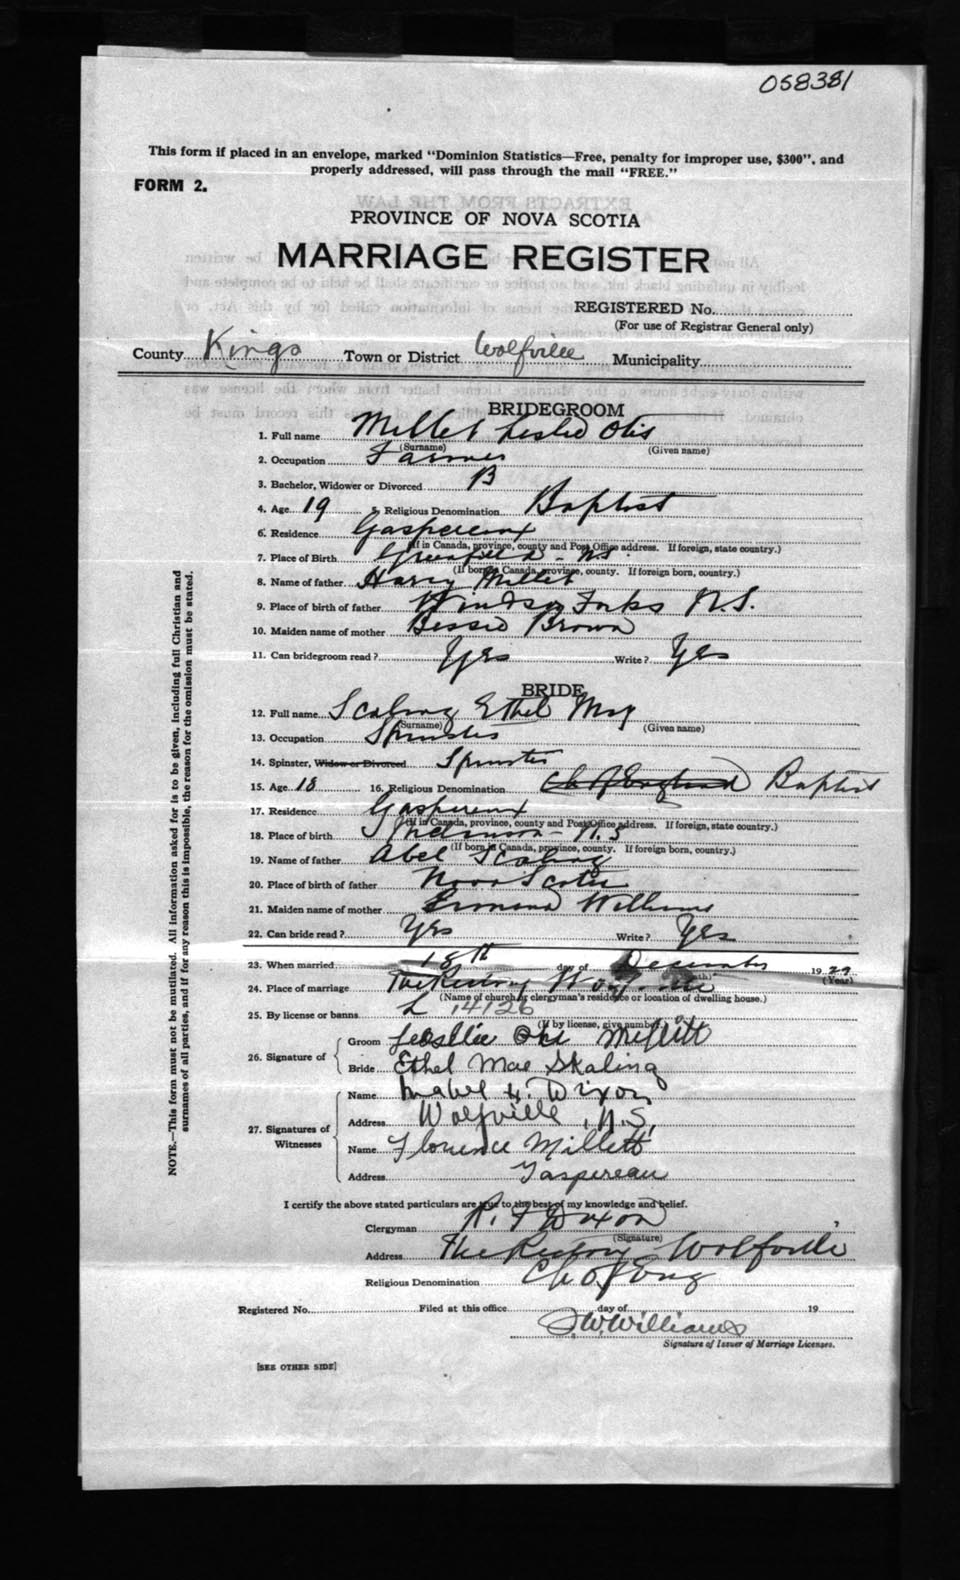 058381
This form if placed in an envelope, marked "Dominion Statistics—Free, penalty for improper use, $300", and
properly addressed, will pass through the mail "FREE."
FORM 2.
PROVINCE OF NOVA SCOTIA
MARRIAGE REGISTER
REGISTERED No.
(For use of Registrar General only)
County Kings Town or District Wolfville Municipality
BRIDEGROOM
1. Full name Millet Leslie Otis
(Surname) (Given name)
2. Occupation Farmer
3. Bachelor, Widower or Divorced B
4. Age 19 5. Religious Denomination Baptist
6. Residence Gaspereaux
(If in Canada, province, county and Post Office address. If foreign, state country.)
7. Place of Birth Greenfield - NS
(If born in Canada, province, county. If foreign born, country.)
8. Name of father Harry Millet
9. Place of birth of father Windsor Forks N.S.
10. Maiden name of mother Bessie Brown
11. Can bridegroom read? Yes Write? Yes
BRIDE
12. Full name Scaling Ethel May
(Surname) (Given name)
13. Occupation Spinster
14. Spinster, Widow or Divorced Spinster
15. Age 18 16. Religious Denomination Ch of England Baptist
17. Residence Gaspereaux
(If in Canada, province, county and Post Office address. If foreign, state country.)
18. Place of birth N.S
(If born in Canada, province, county. If foreign born, country.)
19. Name of father Abel Scaling
20. Place of birth of father Nova Scotia
21. Maiden name of mother Williams
22. Can bride read? Yes Write? Yes
23. When married 18th day of December 1929
(Month) (Year)
24. Place of marriage The Rectory Wolfville
(Name of church or clergyman's residence or location of dwelling house.)
25. By license or banns L 14126
(If by license, give number.)
26. Signature of Groom Lesllie Otis Millett
Bride Ethel Mae Skaling
27. Signatures of Witnesses Name Mabel H. Dixon
Address Wolfville, N.S.
Name Florence Millett
Address Gaspereau
I certify the above stated particulars are true to the best of my knowledge and belief.
Clergyman R. F Dixon
(Signature)
Address The Rectory Wolfville
Religious Denomination Ch of Eng
Registered No. Filed at this office day of 19
J.W.Williams
Signature of Issuer of Marriage Licenses.
[SEE OTHER SIDE]
NOTE.—This form must not be mutilated. All information asked for is to be given, including full Christian and
surnames of all parties, and if for any reason this is impossible, the reason for the omission must be stated.